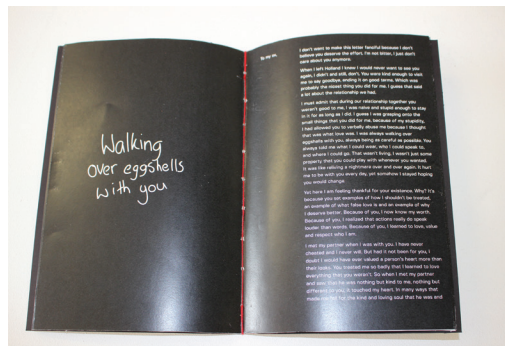 Walking
over eggshells
with you
To my ex,
I don't want to make this letter fanciful because I don't
believe you deserve the effort. I'm not bitter, I just don't
care about you anymore.
When I left Holland I knew I would never want to see you
again, I didn't and still, don't. You were kind enough to visit
me to say goodbye, ending it on good terms. Which was
probably the nicest thing you did for me, I guess that said
a lot about the relationship we had.
I must admit that during our relationship together you
weren't good to me, I was naive and stupid enough to stay
in it for as long as I did. I guess I was grasping onto the
small things that you did for me, because of my stupidity,
I had allowed you to verbally abuse me because I thought
that was what love was. I was always walking over
eggshells with you, always being as careful as possible. You
always told me what I could wear, who I could speak to,
and where I could go. That wasn't living, I wasn't just some
property that you could play with whenever you wanted.
It was like reliving a nightmare over and over again. It hurt
me to be with you every day, yet somehow I stayed hoping
you would change.
Yet here I am feeling thankful for your existence. Why? It's
because you set examples of how I shouldn't be treated,
an example of what false love is and an example of why
I deserve better. Because of you, I now know my worth.
Because of you, I realised that actions really do speak
louder than words. Because of you, I learned to love, value
and respect who I am.
I met my partner when I was with you, I have never
cheated and I never will. But had it not been for you, I
doubt I would have ever valued a person's heart more than
their looks. You treated me so badly that I learned to love
everything that you weren't. So when I met my partner
and saw that he was nothing but kind to me, nothing but
different to you, it touched my heart. In many ways that
made me fall for the kind and loving soul that he was and